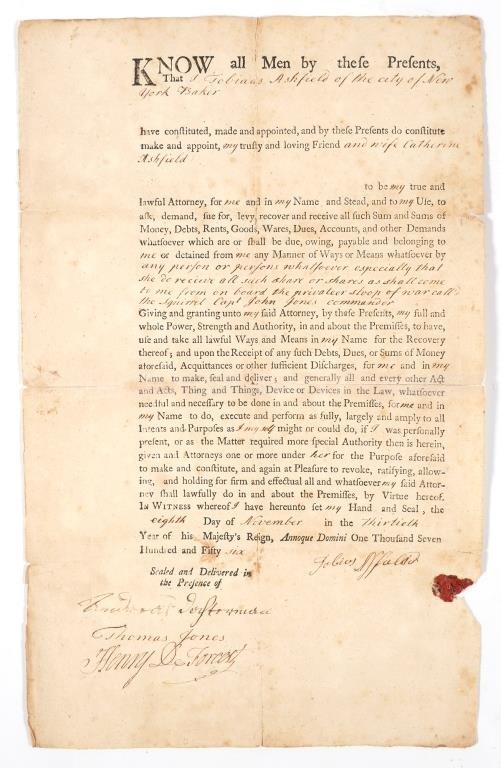 KNOW all Men by theſe Preſents,
That I Tobias Ashfield of the city of New
York Baker
have conſtituted, made and appointed, and by theſe Preſents do conſtitute
make and appoint, my truſty and loving Friend and wife Catherine
Ashfield
to be my true and
lawful Attorney, for me and in my Name and Stead, and to my Uſe, to
aſk, demand, ſue for, levy, recover and receive all ſuch Sum and Sums of
Money, Debts, Rents, Goods, Wares, Dues, Accounts, and other Demands
whatſoever which are or ſhall be due, owing, payable and belonging to
me or detained from me any Manner of Ways or Means whatſoever by
any person or persons whatsoever especially that
she do receive all such share or shares as shall come
to me from on board the privateer sloop of war call'd
the Squirrel Capt John Jones commander
Giving and granting unto my ſaid Attorney, by theſe Preſents, my full and
whole Power, Strength and Authority, in and about the Premiſſes, to have,
uſe and take all lawful Ways and Means in my Name for the Recovery
thereof; and upon the Receipt of any ſuch Debts, Dues, or Sums of Money
aforeſaid, Acquittances or other ſufficient Diſcharges, for me and in my
Name to make, ſeal and deliver; and generally all and every other Act
and Acts, Thing and Things, Device or Devices in the Law, whatſoever
needful and neceſſary to be done in and about the Premiſſes, for me and in
my Name to do, execute and perform as fully, largely and amply to all
Intents and Purpoſes as I my ſelf might or could do, if I was perſonally
preſent, or as the Matter required more ſpecial Authority then is herein,
given and Attorneys one or more under her for the Purpoſe aforeſaid
to make and conſtitute, and again at Pleaſure to revoke, ratifying, allow-
ing, and holding for firm and effectual all and whatſoever my ſaid Attor-
ney ſhall lawfully do in and about the Premiſſes, by Virtue hereof.
IN WITNESS whereof I have hereunto ſet my Hand and Seal, the
eighth Day of November in the Thirtieth
Year of his Majeſty's Reign, Annoque Domini One Thouſand Seven
Hundred and Fifty six
Tobias
Sealed and Delivered in
the Preſence of
Thomas Jones
Henry De Foreest